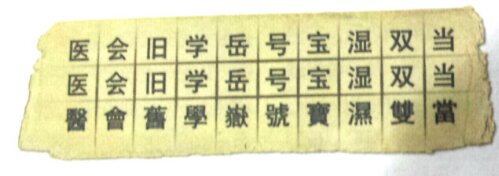 医会旧学岳号宝湿双当
医会旧学岳号宝湿双当
醫會舊學嶽號寶濕雙當